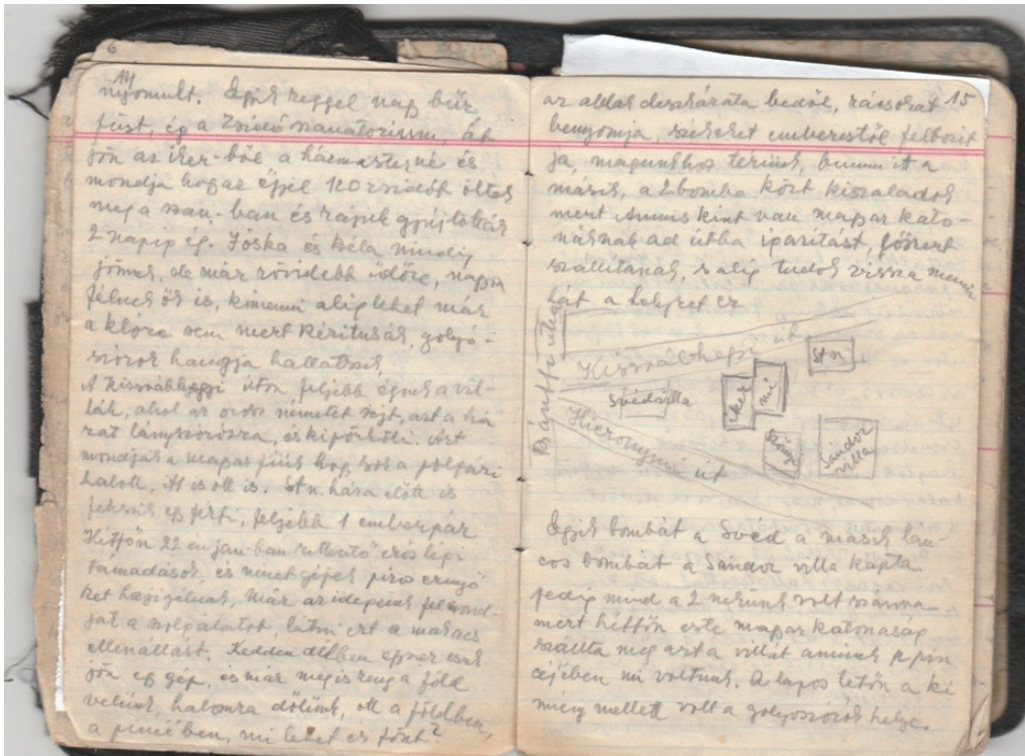 6
14
nyomult. Egyik reggel nagy bűz
füst, ég a Zsidó szanatórium, át
jön az iker-ből a házmesterné és
mondja hogy az éjjel 120 zsidót öltek
meg a szan-ban és rájuk gyujtották
2 napig ég. Jóska és Béla mindig
jönnek, de már rövidebb időre, nagyon
félnek ők is, kimenni alig lehet már
a klóra sem mert Kézitusák, golyó-
szórok hangja hallatszik.
A Kissvábhegyi úton feljebb égnek a vil-
lák, ahol az orosz németet sejt, azt a há
zat lángszórózza, és kipörköli. Azt
mondják a magyar fiúk hogy sok a polgári
halott, itt is ott is. Stn. háza előtt is
fekszik egy férfi, feljebb 1 emberpár
Hétfőn 22 én jan-ban erős légi
támadások, és német gépek piros ernyő
ket hajigálnak, már az idegeink felmond-
ják a szolgálatot, látni ezt a makacs
ellenállást. Kedden délben egyszer csak
jön egy gép, és már meg is reng a föld
velünk, halomra dőlünk, ott a földben,
a pincében, mi lehet ez fönt?
15
az ablak deszkázata bedől, rácsokat
benyomja, székeket emberestől felborít
ja, magunkhoz térünk, bumm itt a
másik, a 2 bomba közt kiszaladok
mert Annus kint van magyar kato-
náknak ad útba igazítást, lőszert
szállítanak, s alig tudok vissza menni
hát a helyzet ez
Bánffi utca
Kissvábhegyi út
Stn
Svédvilla
iker
mi
Hieronymi út
Sándor
villa
Egyik bombát a Svéd a másik lán-
cos bombát a Sándor villa kapta
pedig mind a 2 nekünk volt szánva
mert hétfőn este magyar katonaság
szállta meg azt a villát aminek p pin
céjében mi voltunk. A lapos tetőn a ké
mény mellett volt a golyószórók helye.